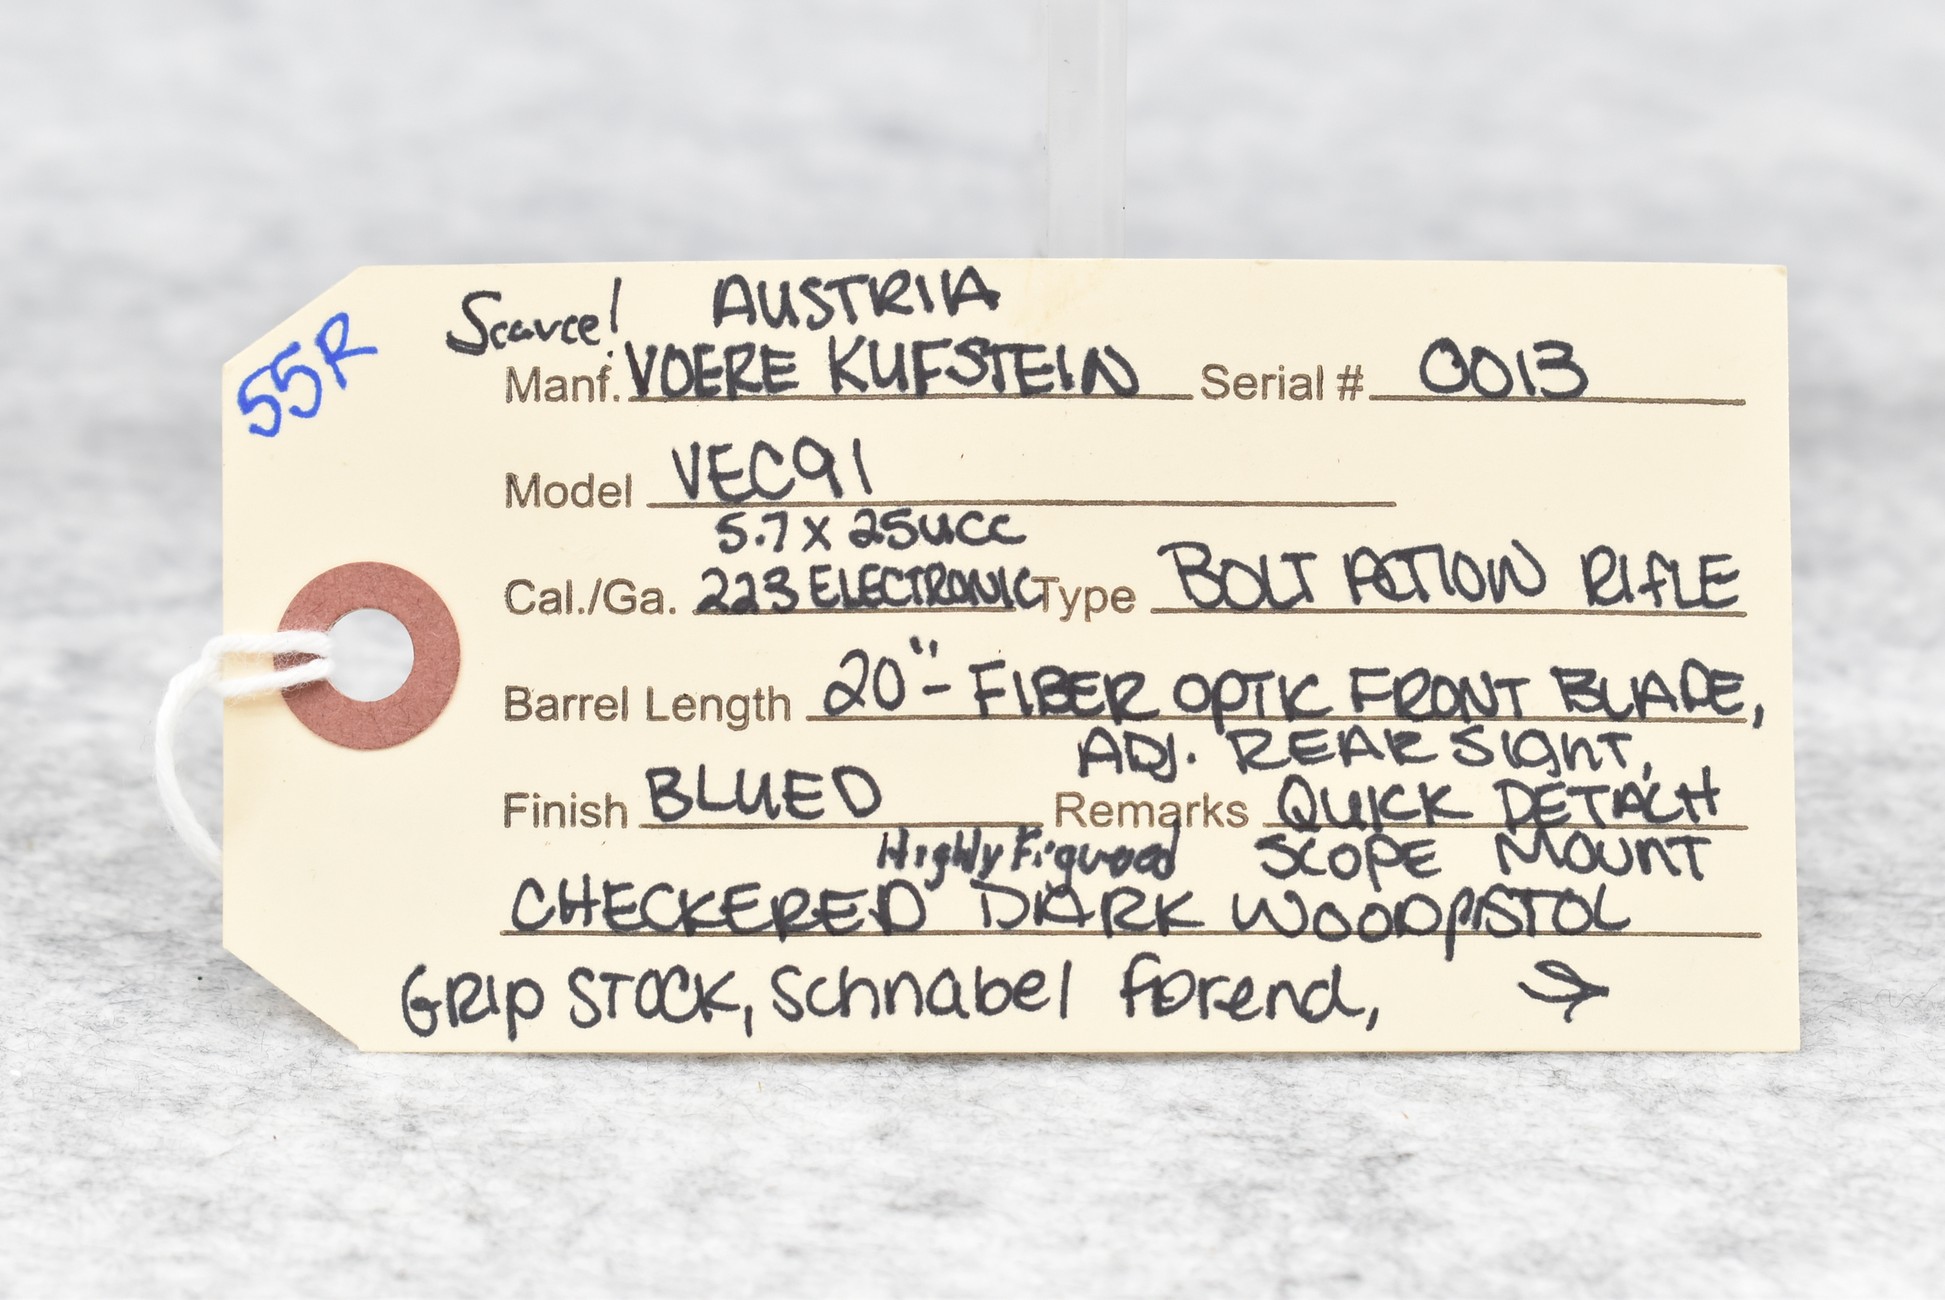 55R
Scarce! AUSTRIA
Manf. VOERE KUFSTEIN Serial # 0013
Model VEC91
5.7 x 25UCC
Cal./Ga. 223 ELECTRONIC Type BOLT ACTION RIFLE
Barrel Length 20"- FIBER OPTIC FRONT BLADE,
ADJ. REAR SIGHT,
Finish BLUED Remarks QUICK DETACH
Highly Figured SCOPE MOUNT
CHECKERED DARK WOOD PISTOL
GRIP STOCK, Schnabel forend, →